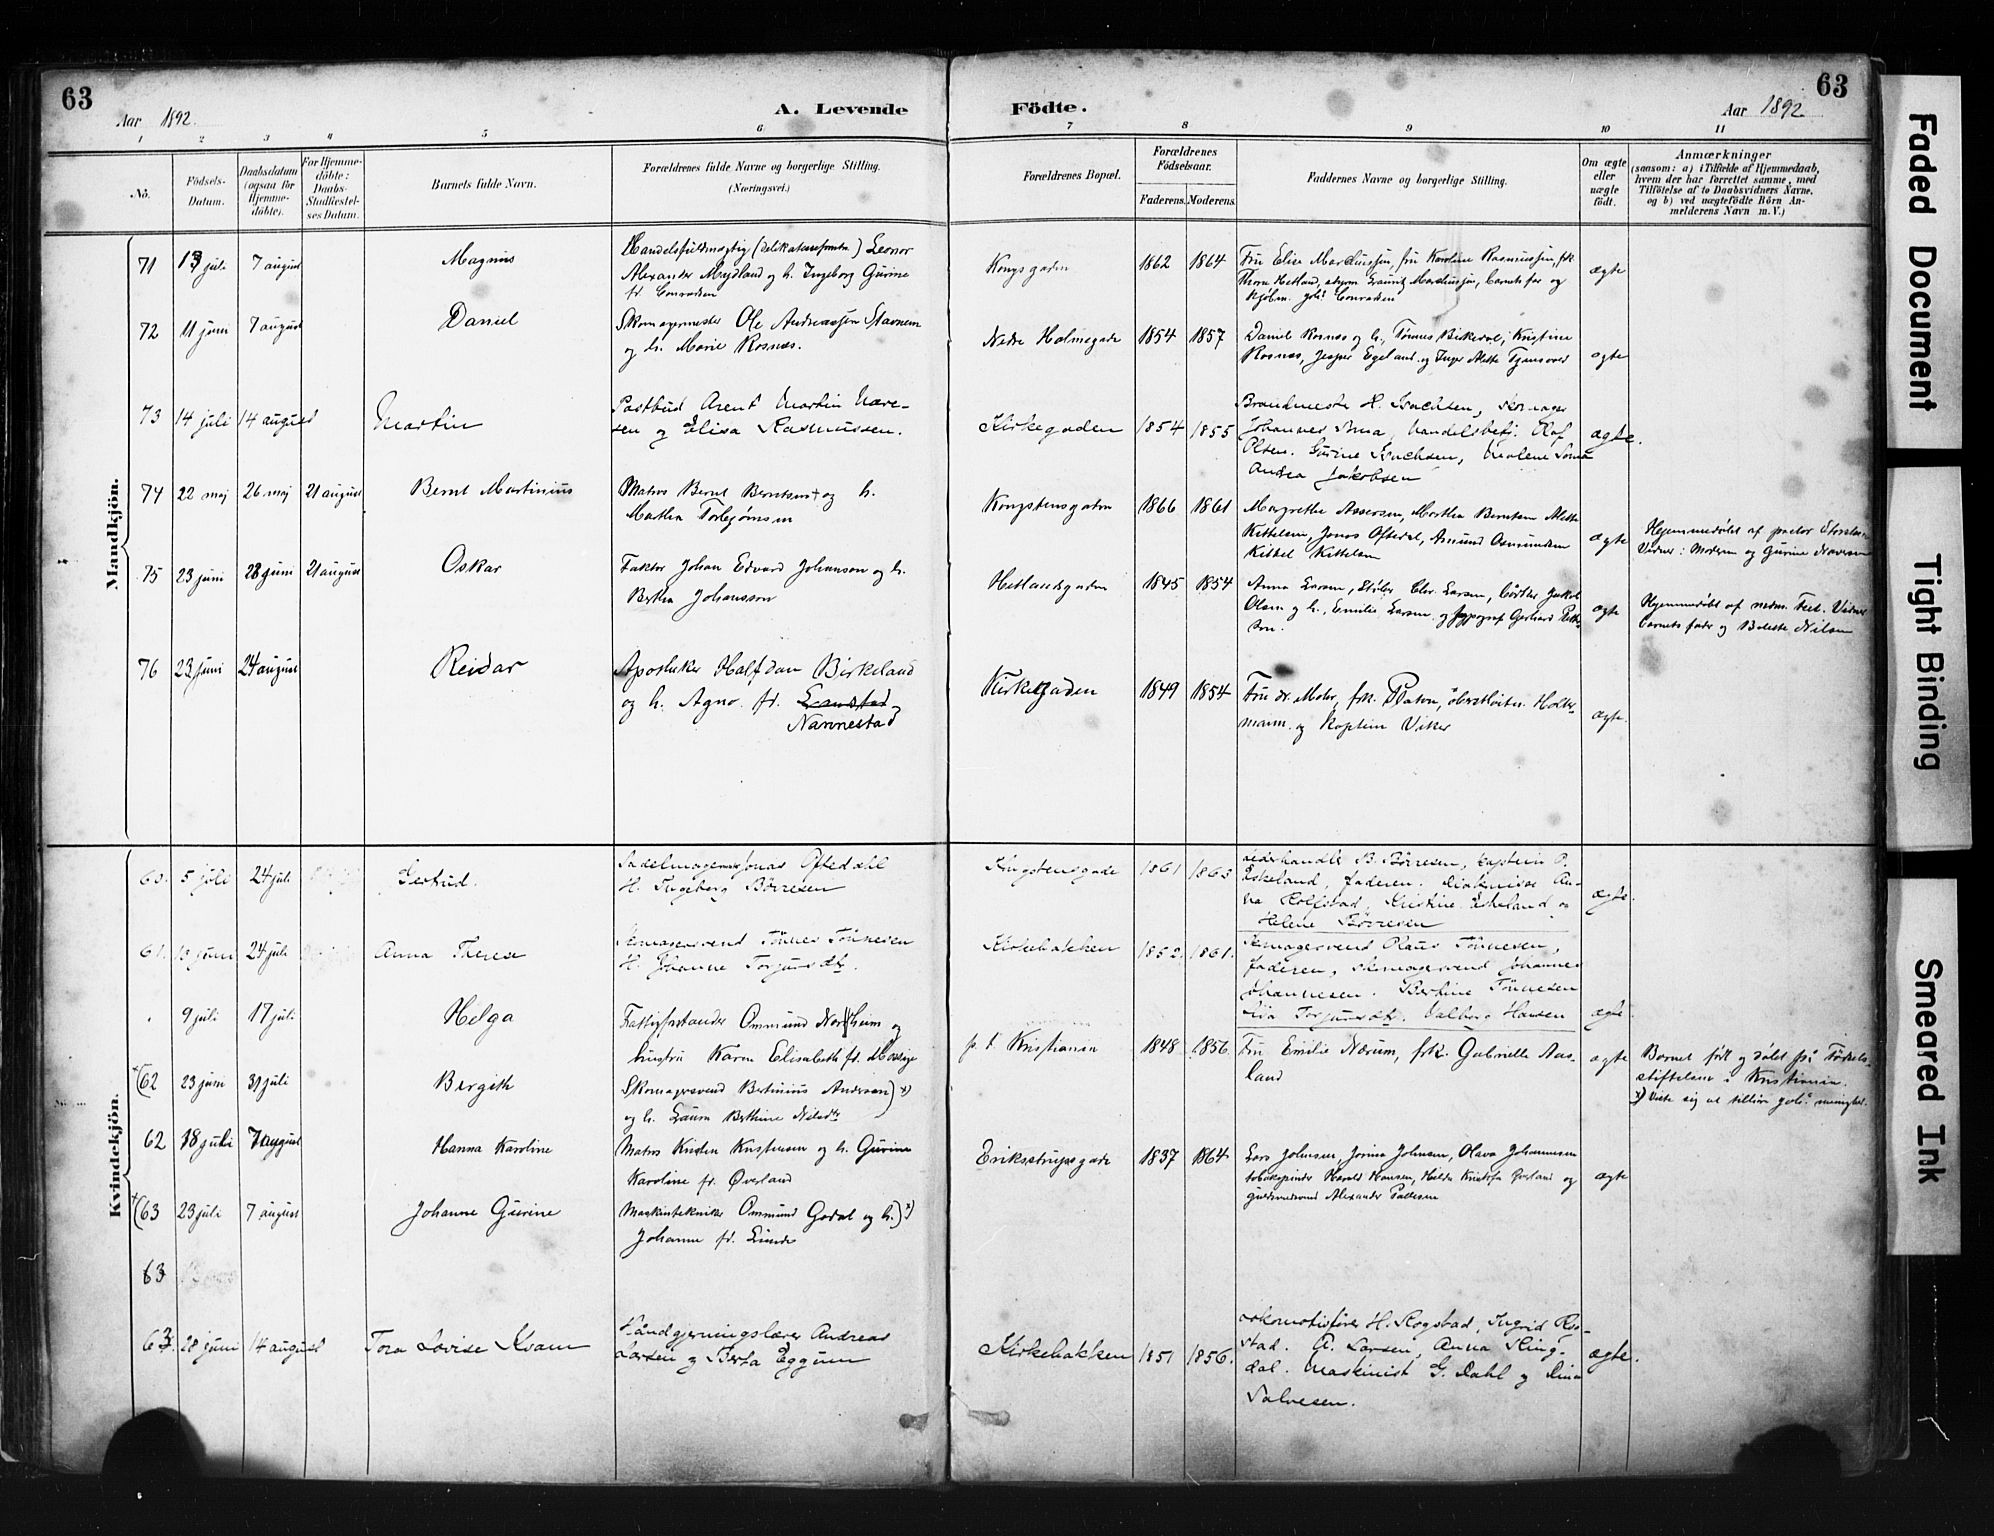 63
A. Levende Födte.
63
Aar 1892.
Aar 1892.
1 2 3 4 5 6 7 8 9 10 11
Nö.
Födsels-Datum.
Daabsdatum (ogsaa for Hjemme-döbte).
For Hjemme-döbte: Daabs-Stadfæstel-ses Datum.
Barnets fulde Navn.
Forældrenes fulde Navne og borgerlige Stilling.
(Næringsvei.)
Forældrenes Bopæl.
Forældrenes Födselsaar.
Faderens. Moderens.
Faddernes Navne og borgerlige Stilling.
Om ægte eller uægte födt.
Anmærkninger
(saasom: a) i Tilfælde af Hjemmedaab,
hvem der har forrettet samme, med
Tilföielse af to Daabsvidners Navne,
og b) ved uægtefödte Börn An-
melderens Navn m. V.)
Mandkjön.
71 13 juli 7 august Magnus
Handelsfuldmægtig Leonor
Alexander Mydland og h. Ingeborg Gurine
fr. Conradsen
Kongsgaden 1862 1864
ægte
72 11 juni 7 august Daniel
Skomagermester Ole Andreassen Stavnem
og h. Marie Rosnes.
Nedre Holmegade 1854 1857
Daniel Rosnes og h., Tønnes Birkeval, Kristine
Rosnes, Jesper Egeland og Inger Mette
ægte
73 14 juli 14 august Martin
Postbud Arent Martin Nære-
sen og Elisa Rasmussen.
Kirkegaden 1854 1855
Brandmester H. Isachsen, skomager
Johannes Handelsbetj. Olaf
Olsen. Gurine Isachsen, Malene
Andrea Jakobsen
ægte.
74 22 maj 26 maj 21 august Bernt Martinius
Matros Bernt Berntsen og h.
Martha Torbjørnsen
Kongstensgaden 1866 1861
Margrethe Assersen, Martha Berntsen Mette
Kittelsen, Jonas Oftedal, Amund Osmundsen
Kittel Kittelsen
ægte
Hjemmedøbt af pastor
Vidner: Moderen og Gurine
75 23 juni 28 juni 21 august Oskar
Faktor Johan Edvard Johanson og h.
Bertha Johansson
Hetlandsgaden 1845 1854
Anna Larsen, Larsen, Jakob
Olsen og h., Emilie Larsen og typograf Gerhard
ægte
Hjemmedøbt af Vidner
barnets fader og Nilsen
76 23 juni 24 august Reidar
Apotheker Halfdan Birkeland
og h. Agno. fr.
Nannestad
Kirkegaden 1849 1854
Fru dr. frk. Platou,
og kaptein
ægte.
Kvindekjön.
60. 5 juli 24 juli Gertrud.
Sadelmager Jonas Oftedahl
H. Ingeborg Börresen
Kngstensgade 1861 1863
B. Börresen, kaptein P.
Eskeland, faderen. Diakonisse An-
na Rolfstad, Kristine Eskeland og
Helene Börresen
ægte.
61. 13 juni 24 juli Anna Therese
Skomagersvend Tönnes Tönnesen
H. Johanne Torjursdtr.
Kirkebakken 1852. 1861.
Skomagersvend Tönnesen,
faderen, skomagersvend Johannes
Johannesen. Bertine Tönnesen
Torjursdtr. Valborg Hansen
ægte
9 juli 17 juli Helga
Fattigforstander Ommund Nordheim og
hustru Karen Elisabeth fr. Mossige
p. t. Kristiania 1848 1856.
Fru Emilie Nærum, frk. Gabrielle Aas-
land
ægte
Barnet født og døbt på Fødsels-
stiftelsen i Kristiania.
x) Viste sig at tilhøre menighet.
(62 23 juni 31 juli Bergith
Skomagersvend Bertinius Andersen) x)
og h. Laura Bethine Nilsdtr
62 18 juli 7 august Hanna Karoline
Matros Kristen Kristensen og h. Gurine
Karoline fr. Øverland
Erikstrupsgade 1837 1864
Lars Johnsen, Jorina Johnsen, Olava Johannesen
Harald Hansen, Hilda og
Alexander
ægte
(63 23 juli 7 august Johanne Gurine
Maskintekniker Ommund Godal og h.) x)
Johanne fr. Lunde
63
63. 28 juni 14 august Tora Lovise Kvam
Håndgjerningslærer Andreas
Larsen og Berta Eggum
Kirkebakken 1851 1856.
Lokomotivfører H. Rogstad, Ingrid Rog-
stad. A. Larsen, Anna Ring-
dal. Maskinist G. Dahl og
Salvesen.
ægte.
Faded Document
Tight Binding
Smeared Ink